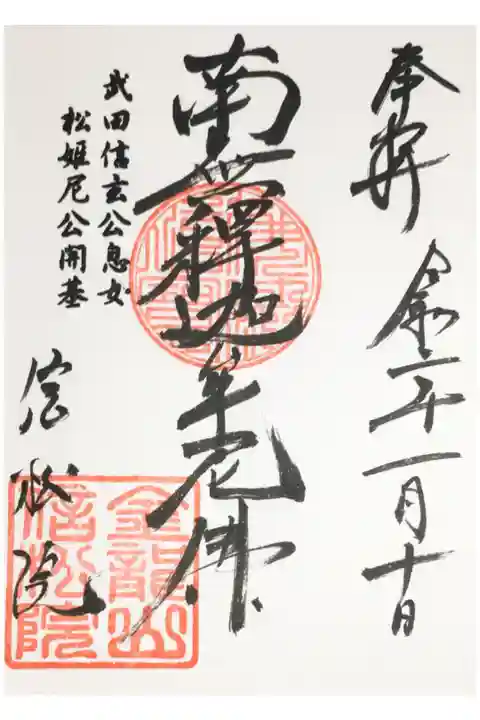 奉拝 令二年一月十日
南無釋迦牟尼佛
武田信玄公息女
松姫尼公開基
信松院
金龍山
信松院